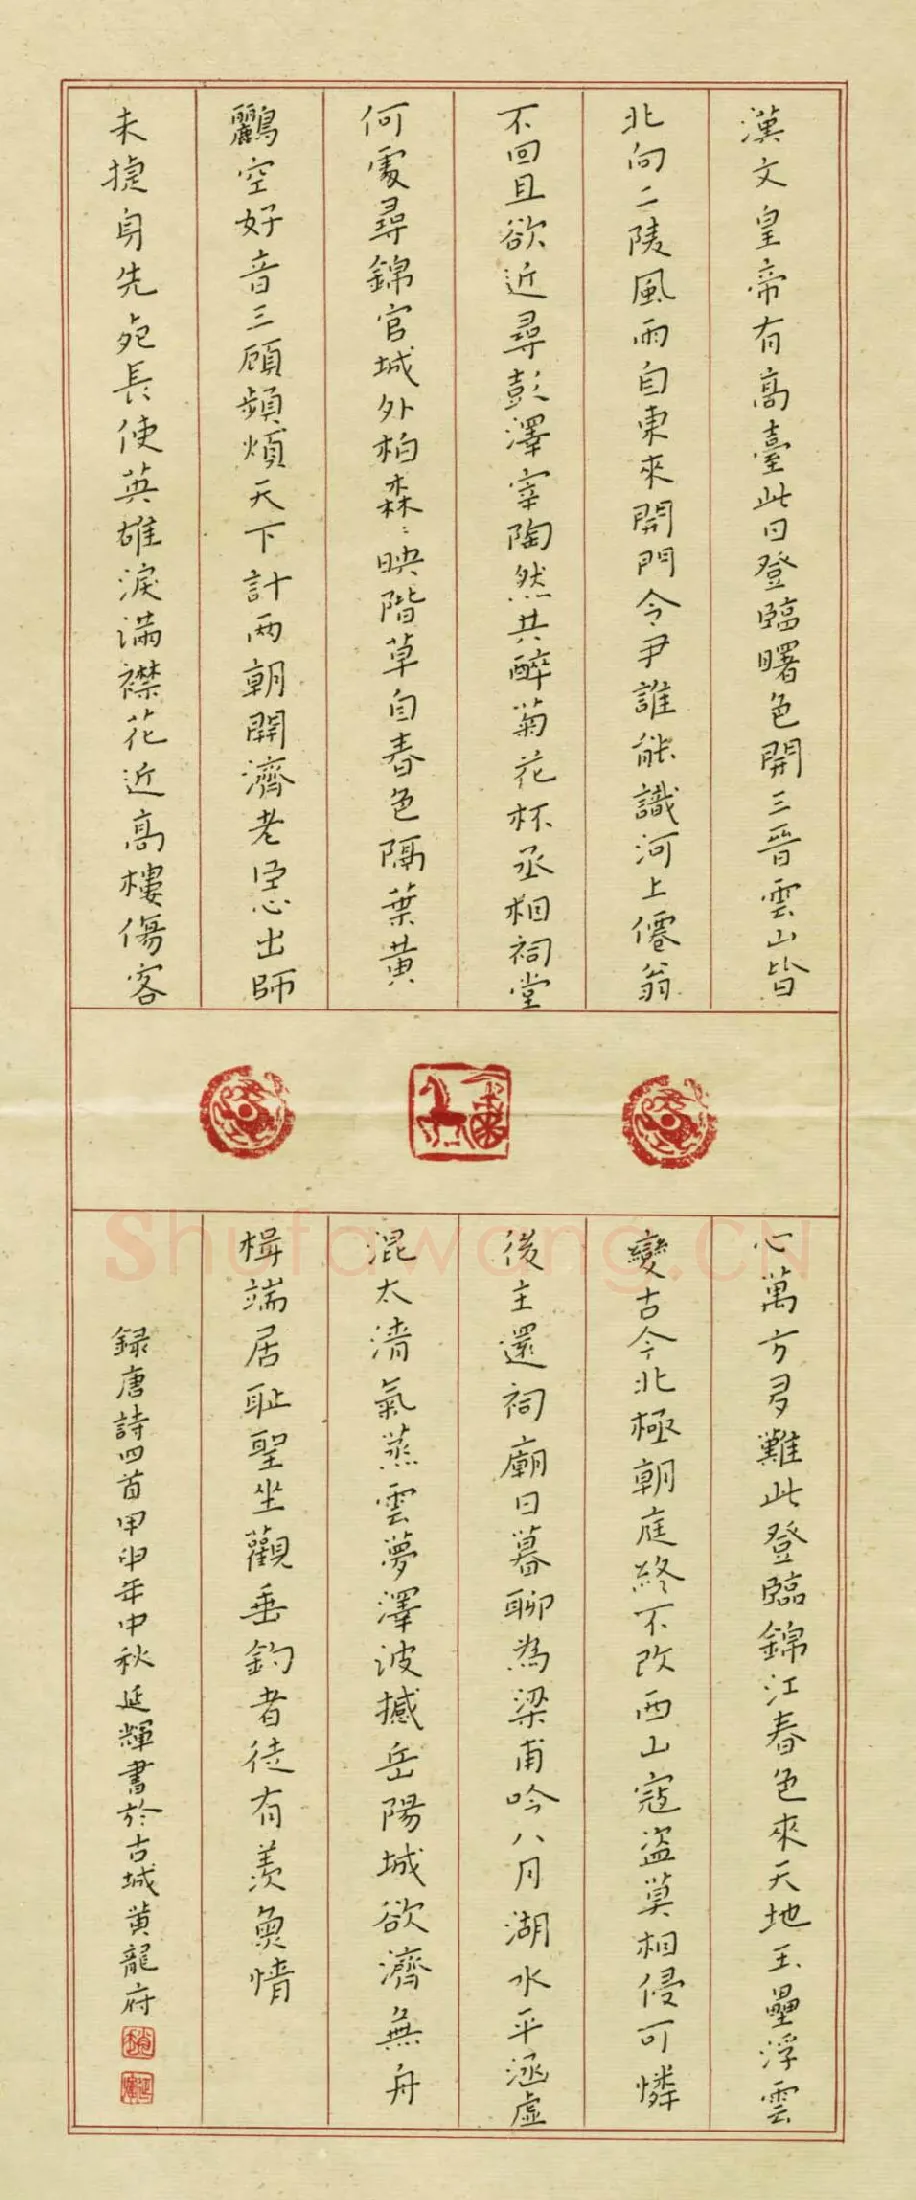 漢文皇帝有高臺此日登臨曙色開三晉雲山皆
北向二陵風雨自東來開門令尹誰能識河上僊翁
不回且欲近尋彭澤宰陶然共醉菊花杯丞相祠堂
何處尋錦官城外柏森〻映階草自春色隔葉黄
鸝空好音三顧頻煩天下計两朝開濟老臣心出師
未捷身先死長使英雄淚滿襟花近高樓傷客
心萬方多難此登臨錦江春色來天地玉壘浮雲
變古今北極朝庭終不改西山寇盜莫相侵可憐
後主還祠廟日暮聊為梁甫吟八月湖水平涵虛
混太清氣蒸雲夢澤波撼岳陽城欲濟無舟
楫端居耻聖坐觀垂釣者徒有羨魚情
録唐詩四首甲申年中秋延輝書於古城黄龍府
Shufawang.CN